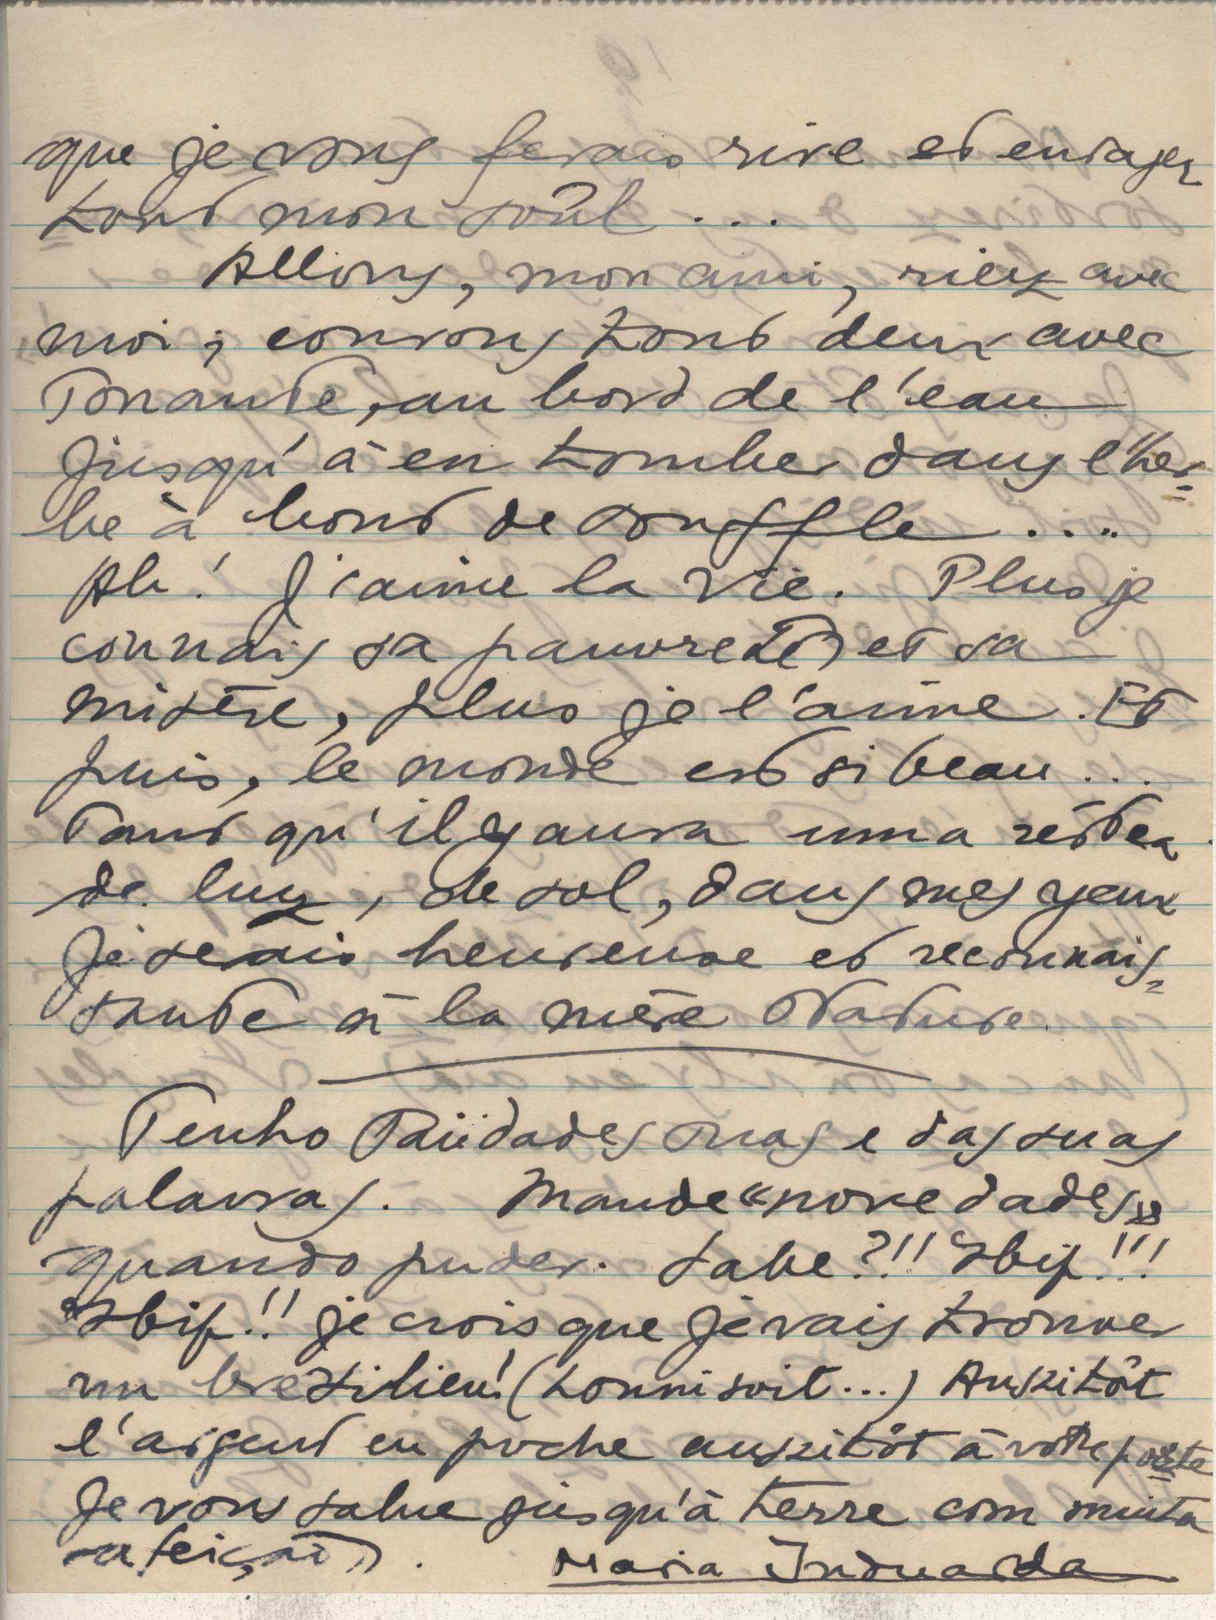 que je vous ferais rire et enrager
tout mon soûl ...
Allons, mon ami, riez avec
moi; courons tout deux avec
Tonante, au bord de l'eau
jusqu'à en tomber dans l'her-
be à bout de souffle ....
Ah! J'aime la vie. Plus je
connais sa pauvreté et sa
misère, plus je l'aime. Et
puis, le monde est si beau ...
Tant qu'il y aura uma réstea
de luz, de sol, dans mes yeux
je serais heureuse et reconnais-
sante à la mère Nature.
Tenho saüdades suas e das suas
palavras. Mande "novedades"
quando puder. Sabe?!!
je crois que je vais trouver
un brezilien! (honni soit...) Aussitôt
l'argent en poche aussitôt à votre porte
Je vous salue jusqu'à terre com muita
afeição.
Maria